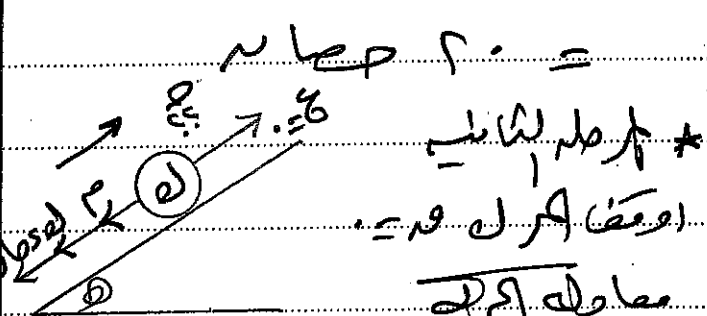 = ٢٠ حصان
* المرحلة الثانية
أوقف المحرك ق = ٠
معادلة الحركة
ق = ٠
ج
ك
م
هـ